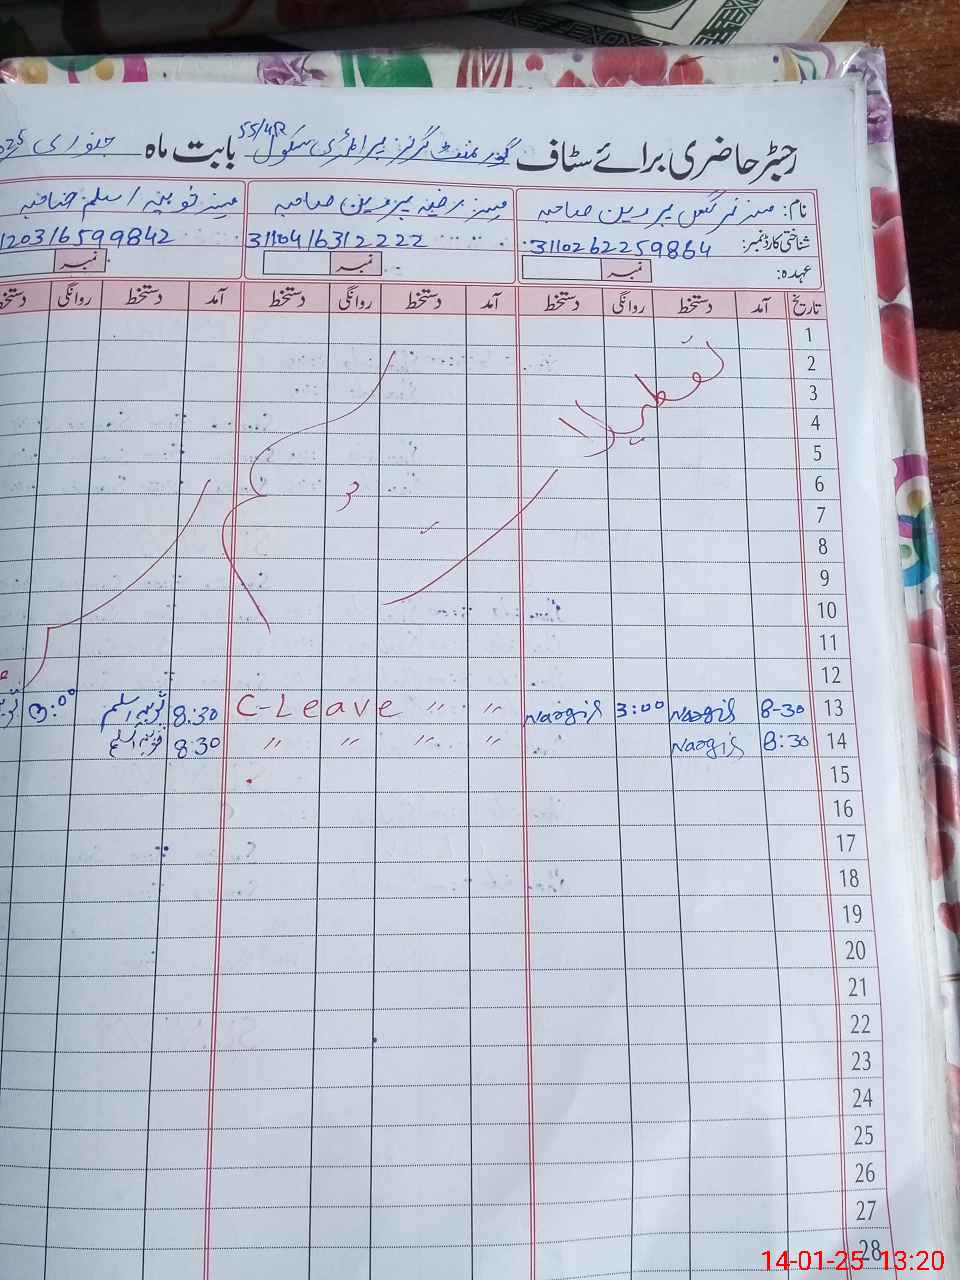 رجسٹر حاضری برائے سٹاف گورنمنٹ گرلز پرائمری سکول 55/4R بابت ماہ جنوری
نام: مسز نرگس پروین صاحبہ مسز رضیہ پروین صاحبہ مسز ثوبیہ اسلم صاحبہ
شناختی کارڈ نمبر: 3110262259864 3110416312222 120316599842
عہدہ: نمبر نمبر نمبر
تاریخ آمد دستخط روانگی دستخط آمد دستخط روانگی دستخط آمد دستخط روانگی
1
2
3
4
5
6
7
8
9
10
11
12
13 8-30 Naogis 3:00 Naogis C-Leave 〃 〃 8:30 ثوبیہ اسلم 3:00
14 8:30 Naogis 〃 〃 〃 〃 8:30 ثوبیہ اسلم
15
16
17
18
19
20
21
22
23
24
25
26
27
28
14-01-25 13:20